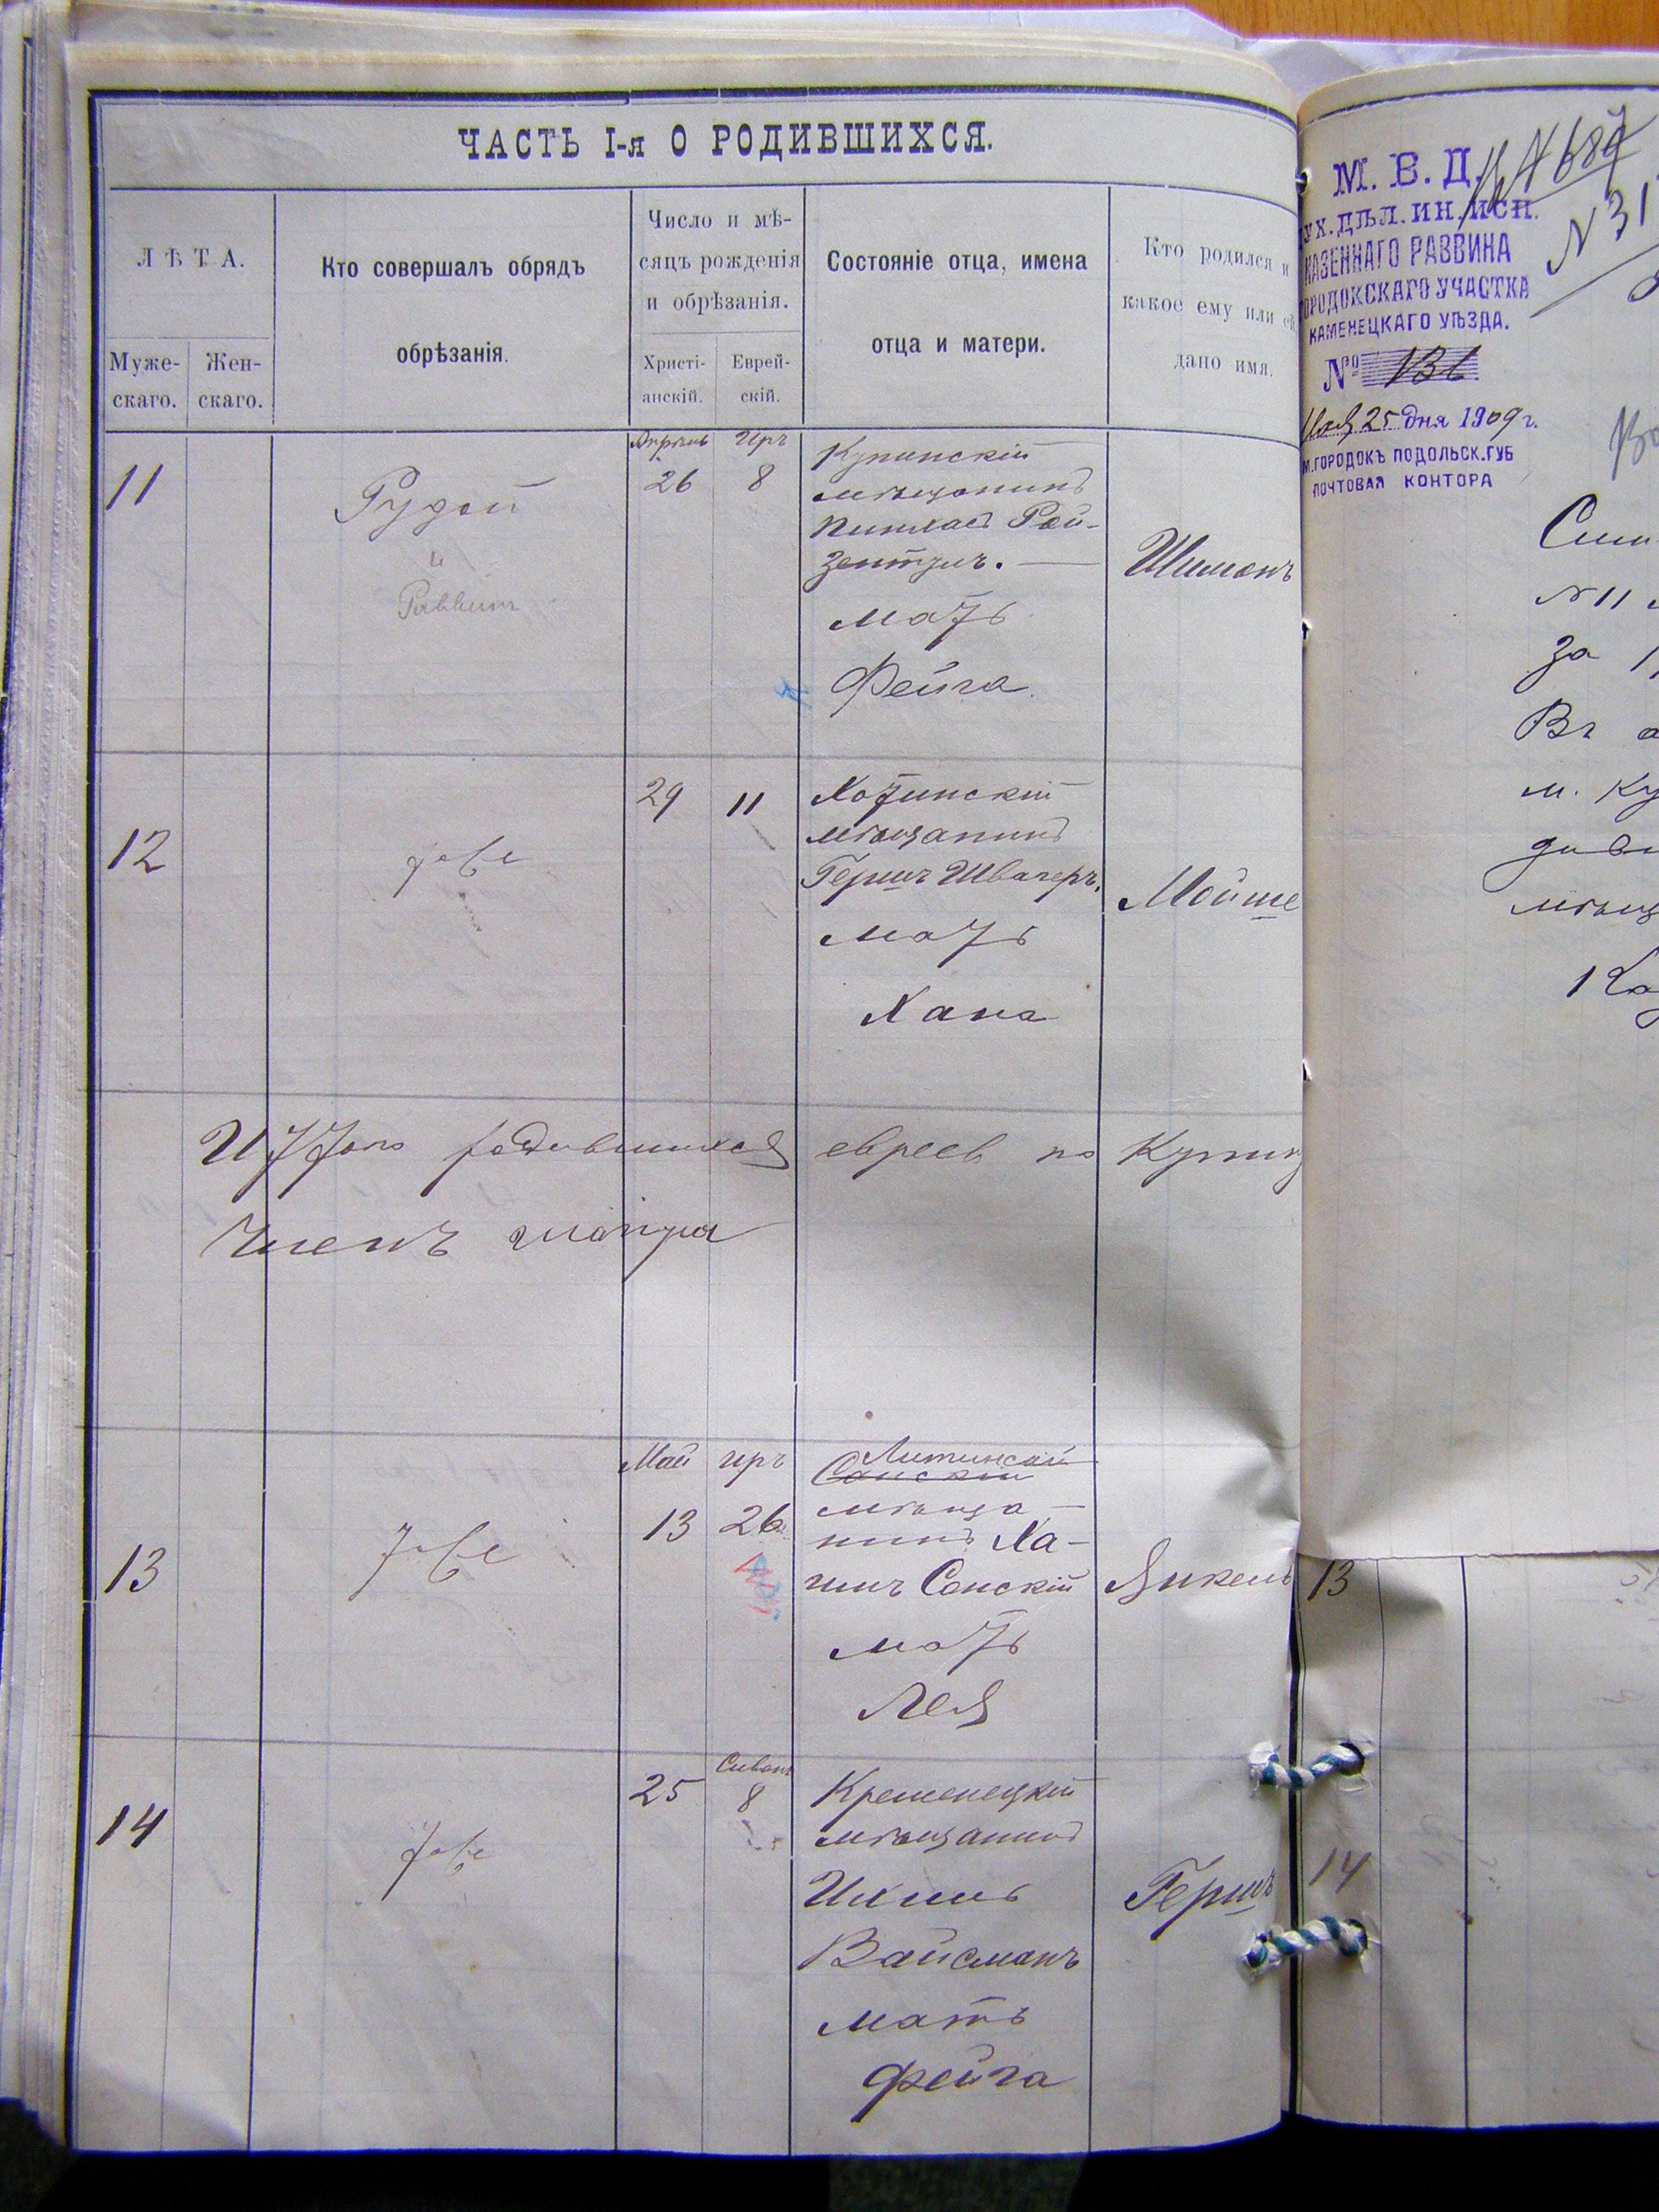 ЧАСТЬ I-я О РОДИВШИХСЯ.
ЛѢТА.
Муже-
скаго.
Жен-
скаго.
Кто совершалъ обрядъ
обрѣзанія.
Число и мѣ-
сяцъ рожденія
и обрѣзанія.
Христі-
анскій.
Еврей-
скій.
Состояніе отца, имена
отца и матери.
Кто родился и
какое ему или ей
дано имя.
11
Рудой
и
Раввинъ
Апрѣль
26
Иръ
8
Купинскій
мѣщанинъ
Пинхасъ Рой-
зентулъ.
мать
Фейга.
Шимонъ
12
тоже
29
11
Хотинскій
мѣщанинъ
Гершъ Швагеръ.
мать
Хана
Мойше
Итого родившихся евреевъ по
Членъ
13
тоже
Май
13
иръ
26
Литинскій
Сонскій
мѣща-
нинъ Ха-
имъ Сонскій
мать
Лея
Янкель
14
тоже
25
Сиванъ
8
Кременецкій
мѣщанинъ
Ихиль
Вайсманъ
мать
Фейга
Гершъ
М. В. Д.
УХ. ДѢЛ. ИН. ИСП.
КАЗЕННАГО РАВВИНА
ГОРОДОКСКАГО УЧАСТКА
КАМЕНЕЦКАГО УѢЗДА.
№ 136
25 дня 1909 г.
М. ГОРОДОКЪ ПОДОЛЬСК. ГУБ
ПОЧТОВАЯ КОНТОРА
N 31
N 11
за
Въ
м. Ку
мѣщ
13
14